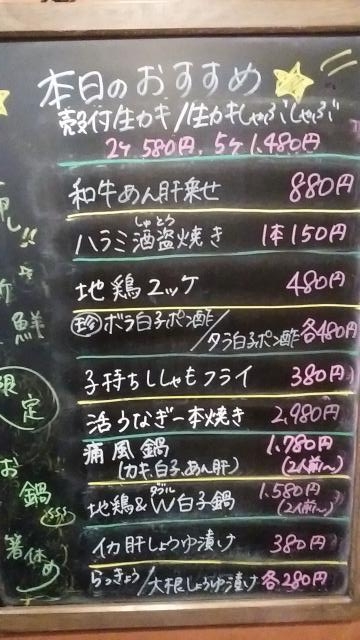 本日のおすすめ
殻付生カキ/生カキしゃぶしゃぶ
2ヶ 580円、5ヶ 1,480円
和牛あん肝乗せ 880円
ハラミ酒盗焼き 1本150円
しゅとう
地鶏ユッケ 480円
珍 ボラ白子ポン酢/
タラ白子ポン酢 各480円
子持ちししゃもフライ 380円
活うなぎ一本焼き 2,980円
痛風鍋 1,780円
(カキ、白子、あん肝) (2人前〜)
ダブル
地鶏&W白子鍋 1,580円
(2人前〜)
イカ肝しょうゆ漬け 380円
らっきょう/大根しょうゆ漬け 各280円
し!!
鮮
限定
お鍋
箸休め